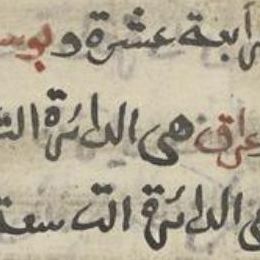 رابعة عشرة و بوسـ
عراق هى الدائرة التـ
ى الدائرة التاسعة